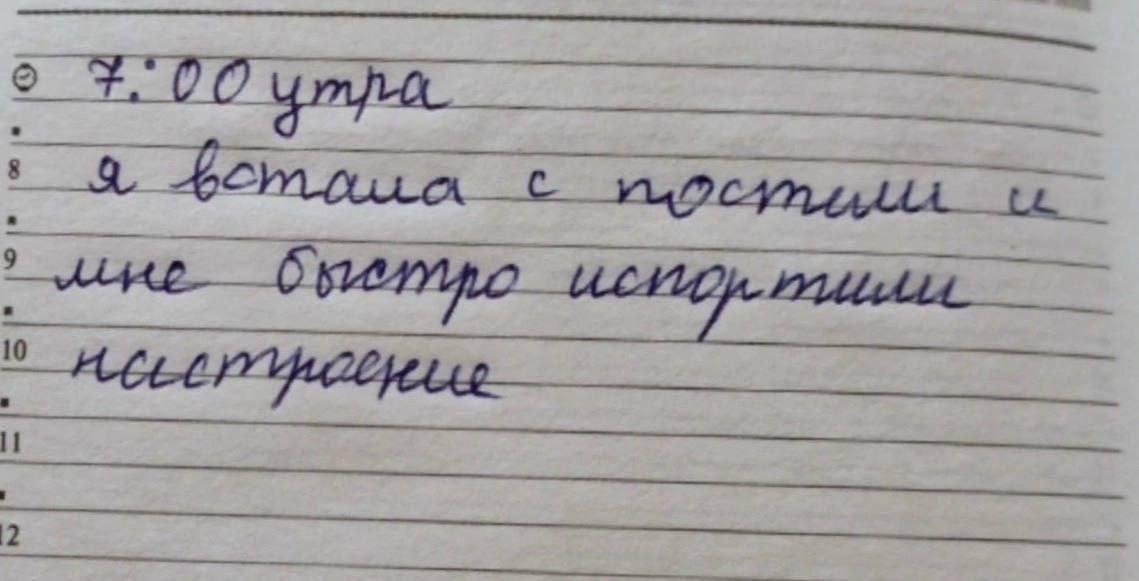 7:00 утра
8 я встала с постили и
9 мне быстро испортили
10 настроение
11
12